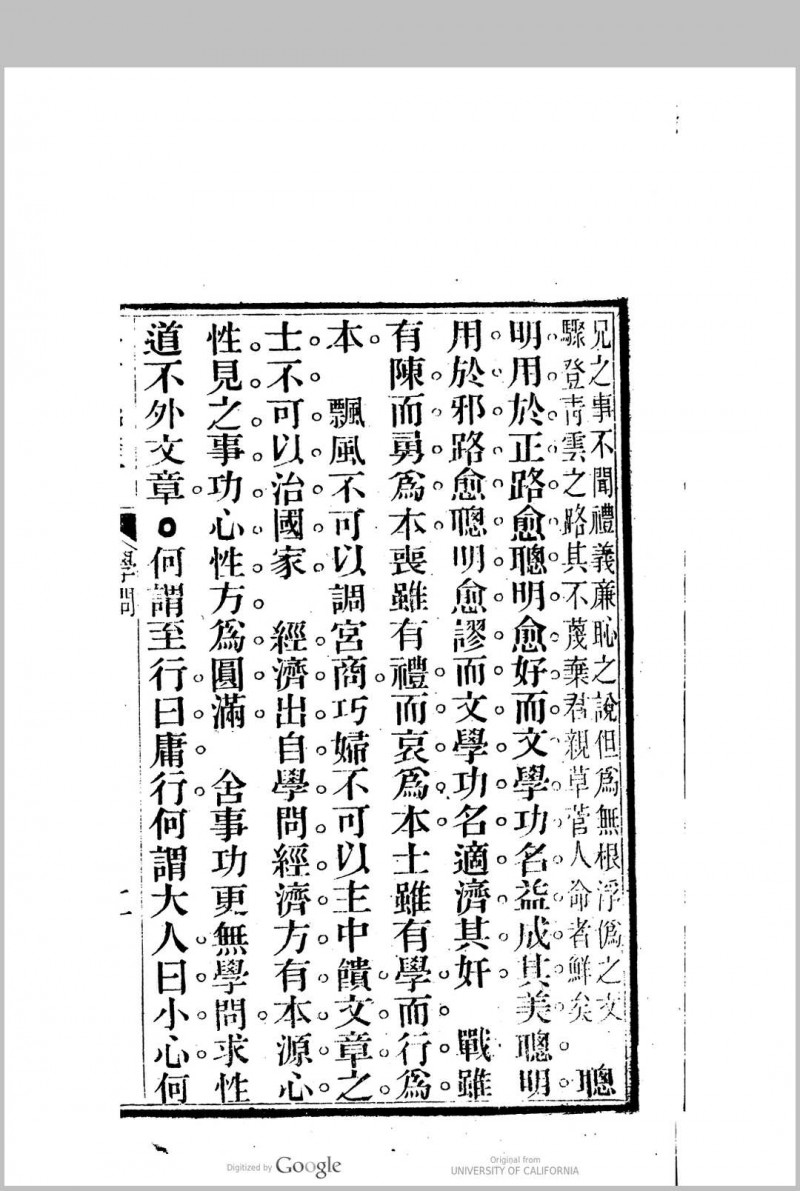 兄之事不聞禮義廉恥之說但爲無根浮僞之文
驟登青雲之路其不蔑棄君親草菅人命者鮮矣 聰
明用於正路愈聰明愈好而文學功名益成其美聰明
用於邪路愈聰明愈謬而文學功名適濟其奸 戰雖
有陳而勇爲本喪雖有禮而哀爲本士雖有學而行爲
本 飄風不可以調宮商巧婦不可以主中饋文章之
士不可以治國家 經濟出自學問經濟方有本源心
性見之事功心性方爲圓滿 舍事功更無學問求性
道不外文章 何謂至行曰庸行何謂大人曰小心何
學問
Digitized by Google
Original from
UNIVERSITY OF CALIFORNIA